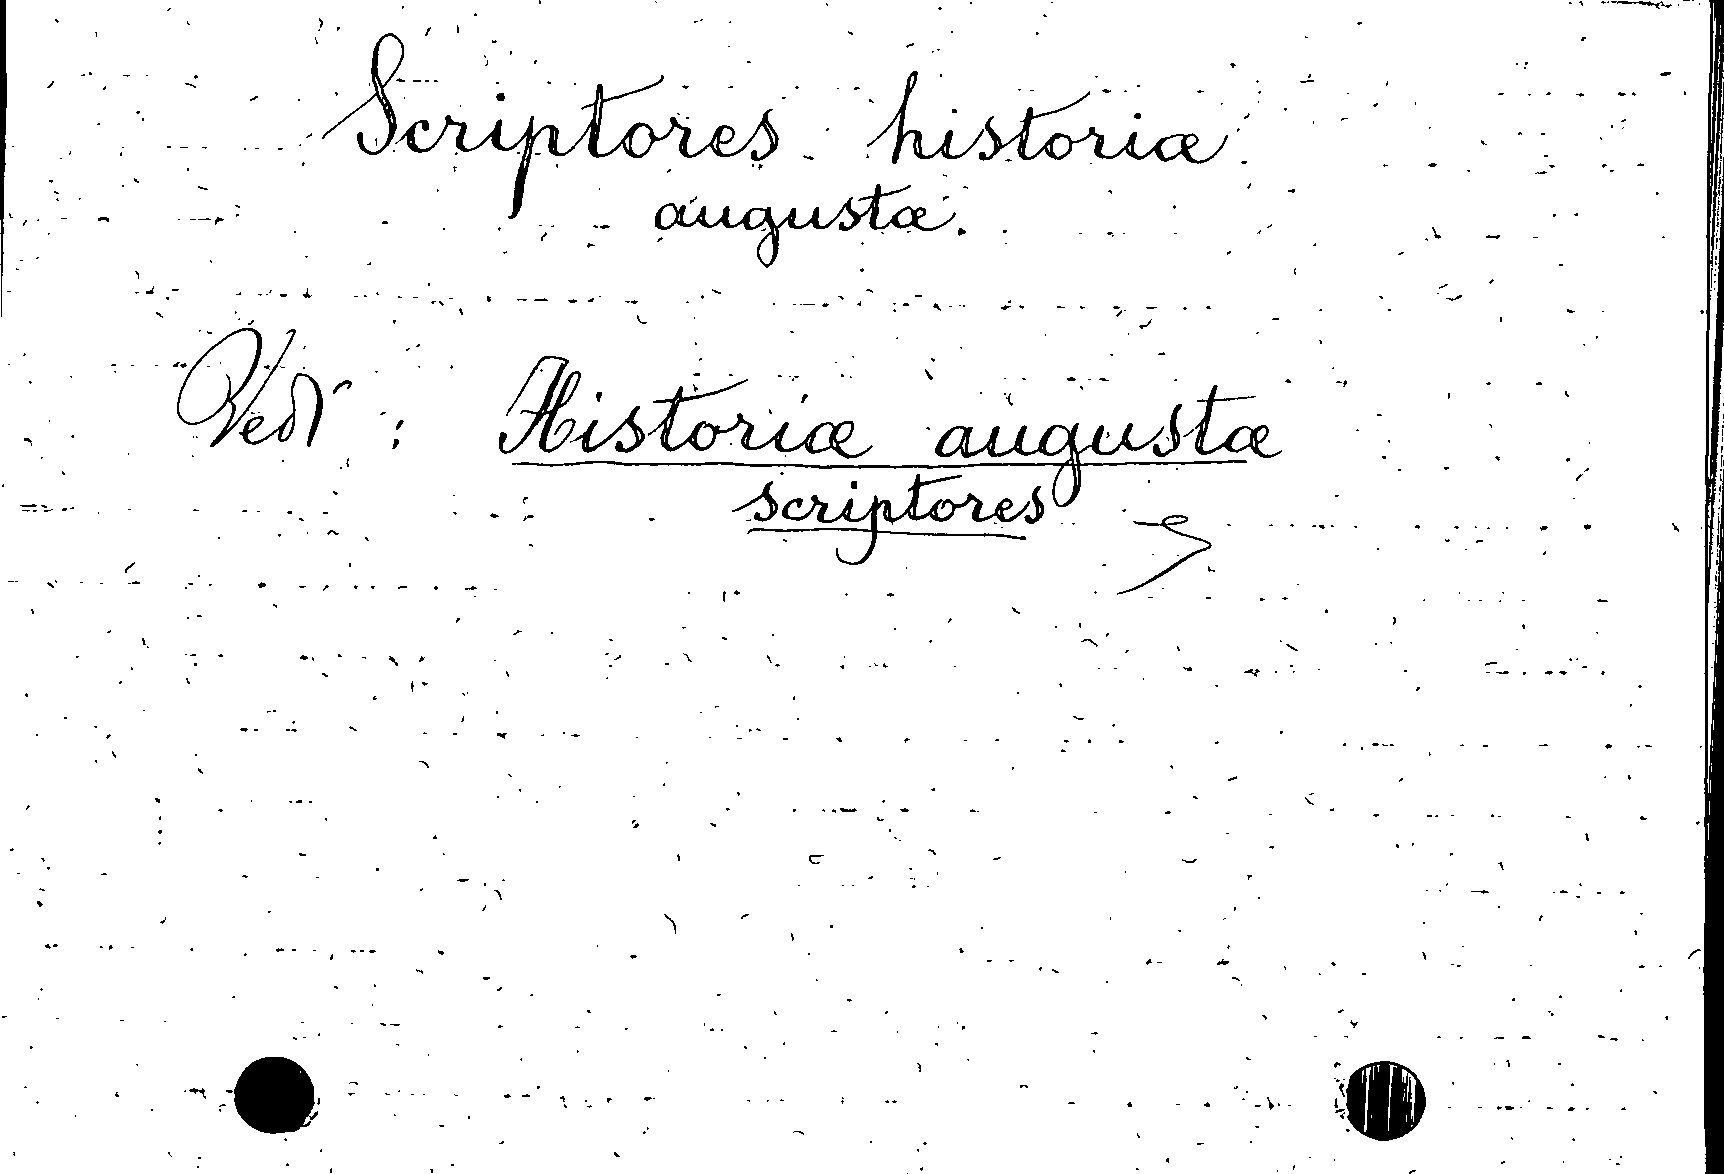 Scriptores historiæ
augustæ.
Vedi : Historiæ augustæ
scriptores